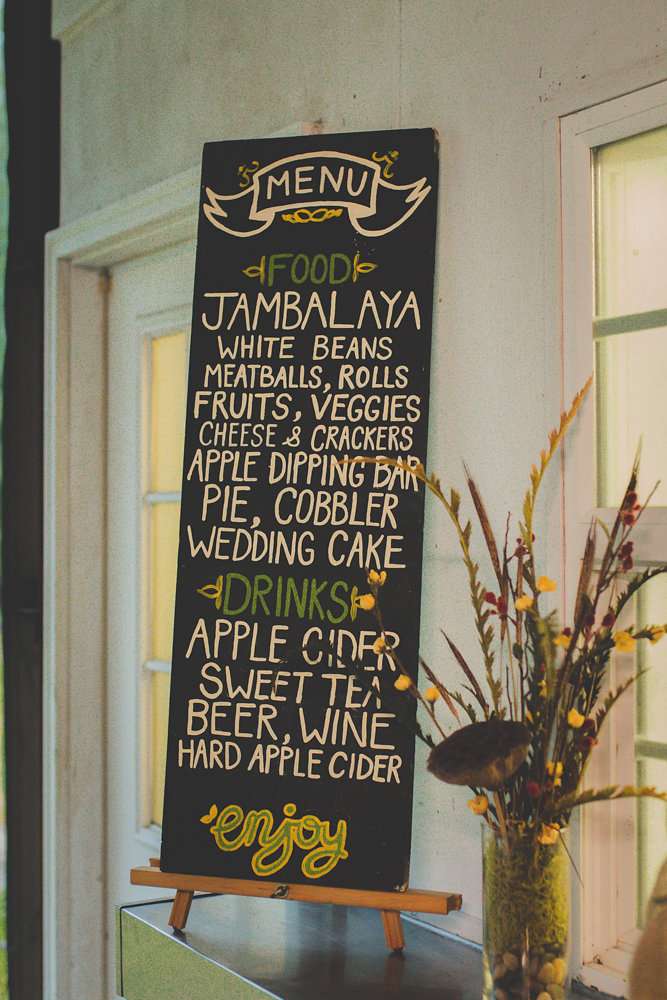 MENU
FOOD
JAMBALAYA
WHITE BEANS
MEATBALLS, ROLLS
FRUITS, VEGGIES
CHEESE & CRACKERS
APPLE DIPPING BAR
PIE, COBBLER
WEDDING CAKE
DRINKS
APPLE CIDER
SWEET TEA
BEER, WINE
HARD APPLE CIDER
enjoy